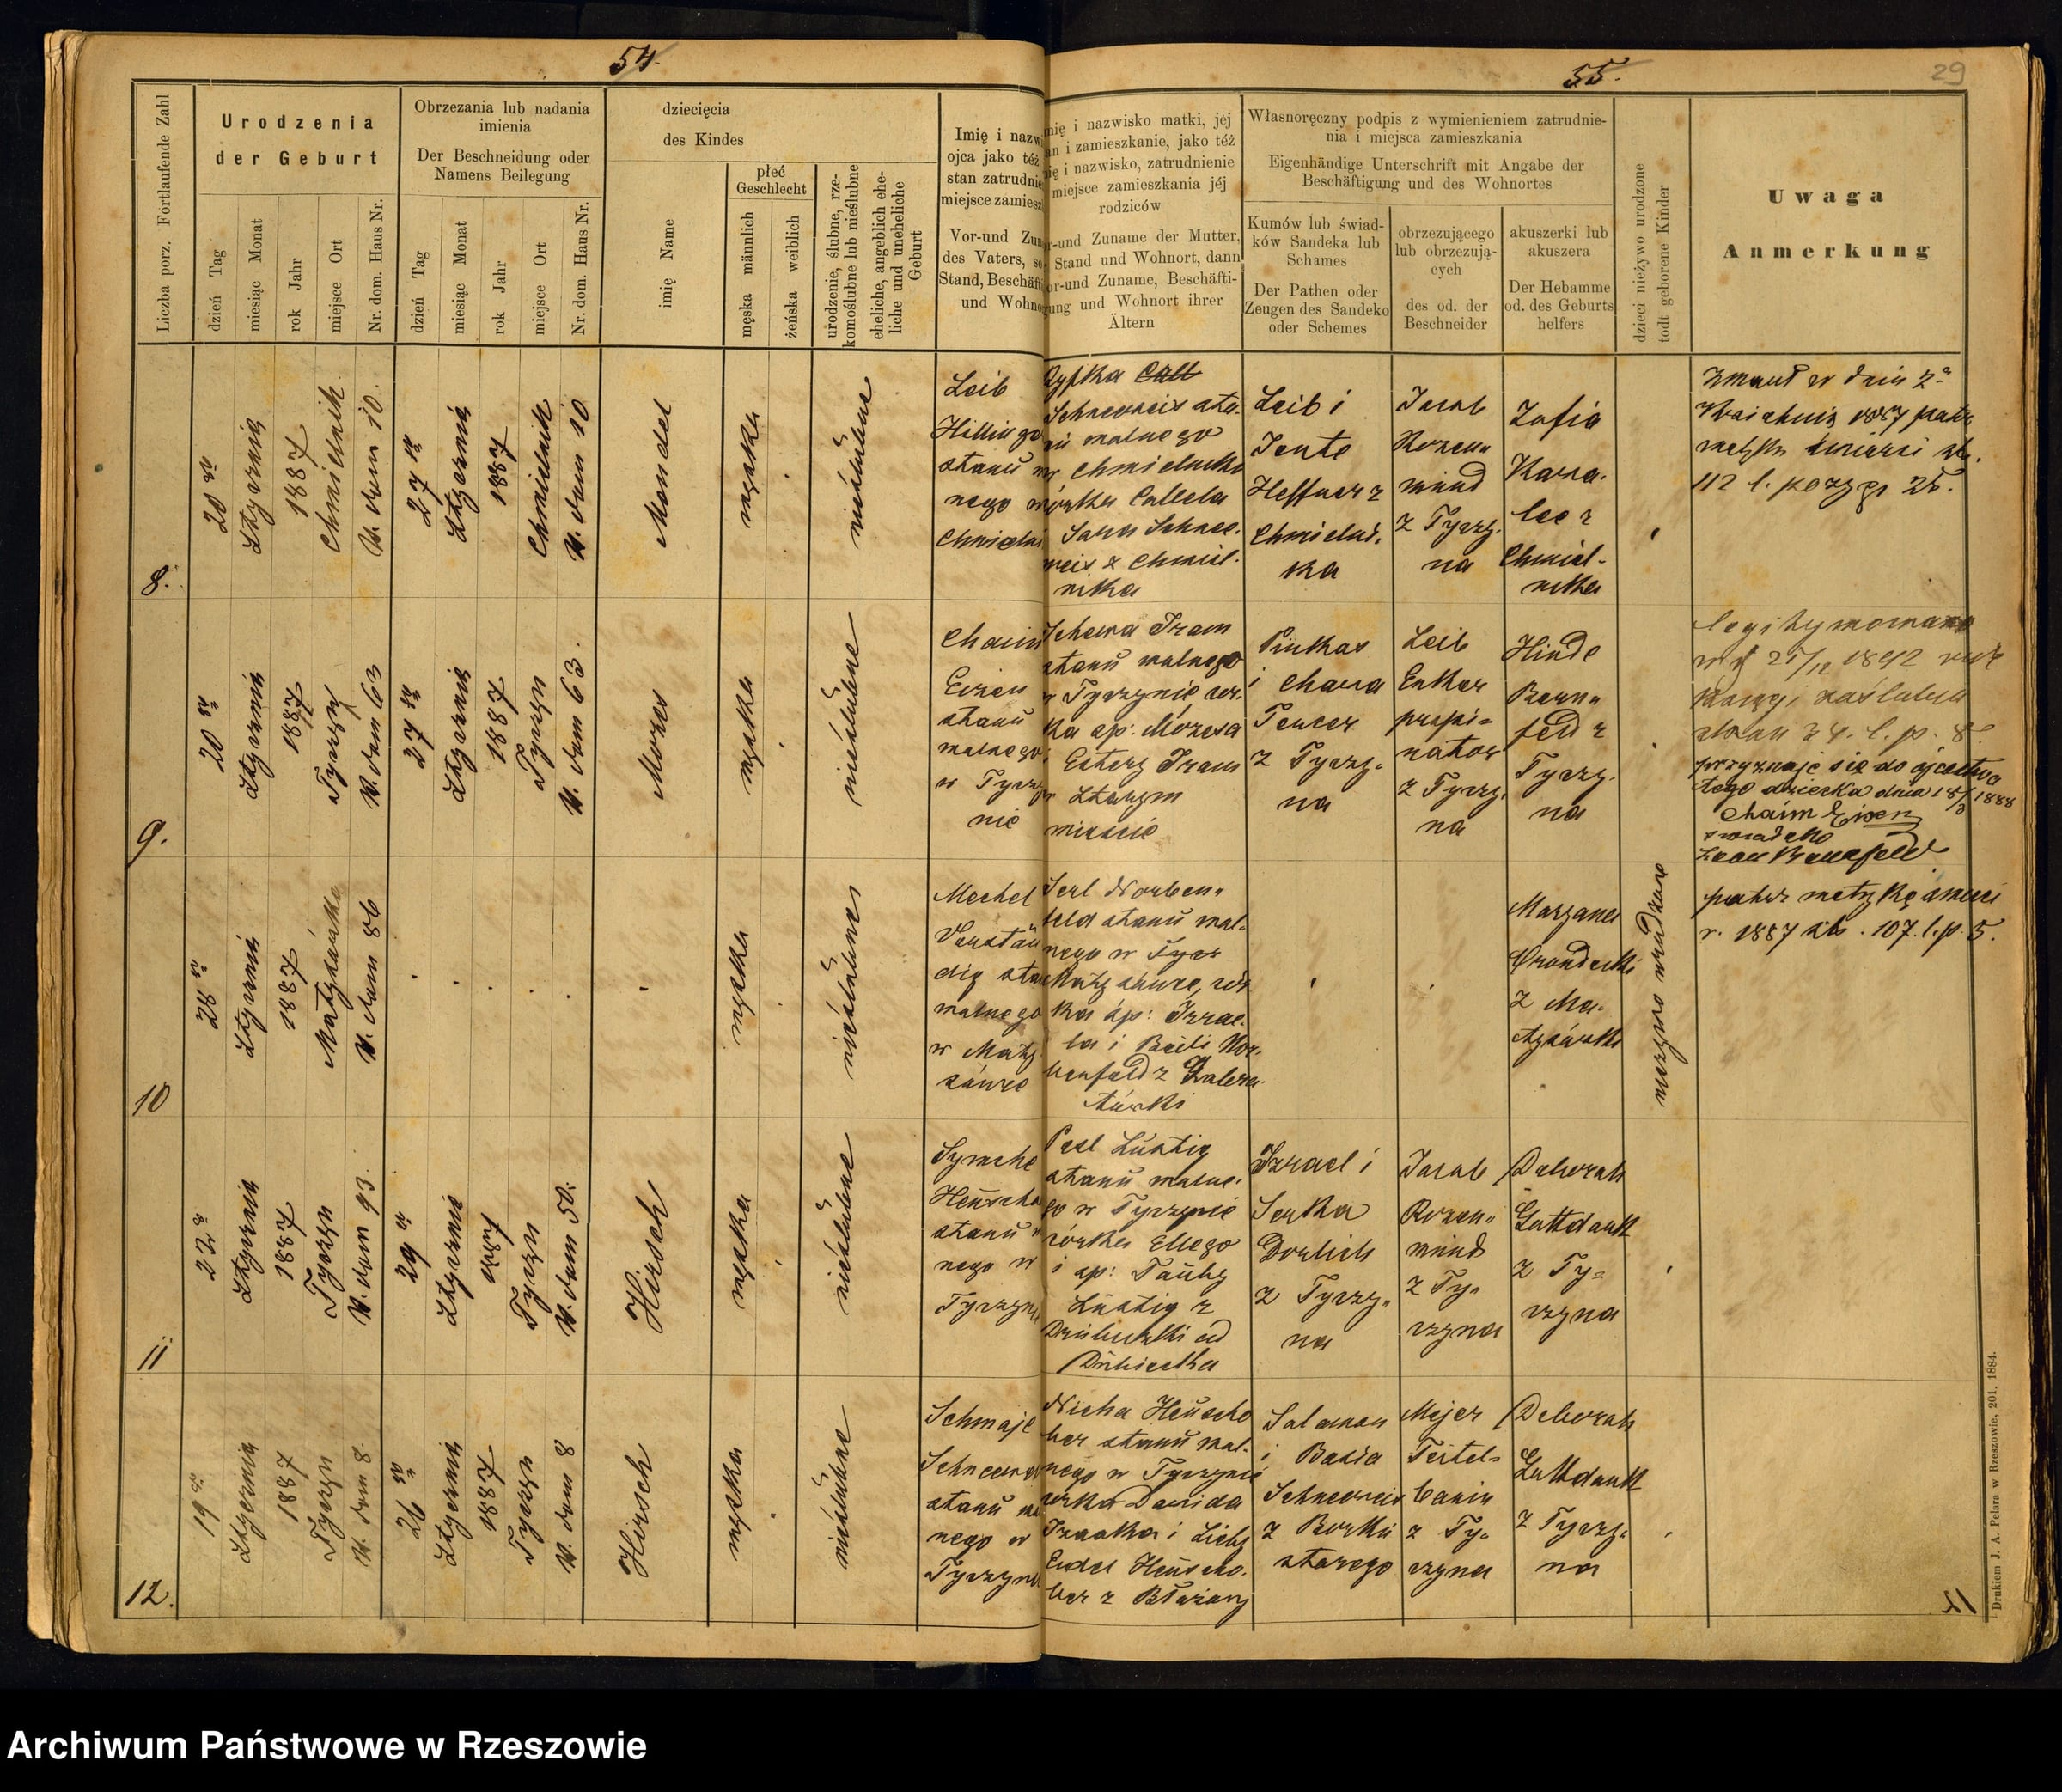 54.
55.
29
Liczba porz. Fortlaufende Zahl
Urodzenia
der Geburt
dzień Tag
miesiąc Monat
rok Jahr
miejsce Ort
Nr. dom. Haus Nr.
Obrzezania lub nadania
imienia
Der Beschneidung oder
Namens Beilegung
dzień Tag
miesiąc Monat
rok Jahr
miejsce Ort
Nr. dom. Haus Nr.
dziecięcia
des Kindes
imię Name
płeć
Geschlecht
męska männlich
żeńska weiblich
urodzenie, ślubne, rze-
komoślubne lub nieślubne
eheliche, angeblich ehe-
liche und uneheliche
Geburt
Imię i nazw
ojca jako téż
stan zatrudnie
miejsce zamiesz
Vor-und Zun
des Vaters, so
Stand, Beschäft
und Wohno
mię i nazwisko matki, jéj
an i zamieszkanie, jako téż
ię i nazwisko, zatrudnienie
miejsce zamieszkania jéj
rodziców
r-und Zuname der Mutter,
Stand und Wohnort, dann
or-und Zuname, Beschäfti-
gung und Wohnort ihrer
Ältern
Własnoręczny podpis z wymienieniem zatrudnie-
nia i miejsca zamieszkania
Eigenhändige Unterschrift mit Angabe der
Beschäftigung und des Wohnortes
Kumów lub świad-
ków Sandeka lub
Schames
Der Pathen oder
Zeugen des Sandeko
oder Schemes
obrzezującego
lub obrzezują-
cych
des od. der
Beschneider
akuszerki lub
akuszera
Der Hebamme
od. des Geburts
helfers
dzieci nieżywo urodzone
todt geborene Kinder
Uwaga
Anmerkung
8.
20
Stycznia
1887
Chmielnik
N. dom 10.
27
Stycznia
1887
Chmielnik
N. dom 10
Mendel
męska
nieślubne
Leib
stanu
nego
Chmielni
Ryfka
Schneeweis
nu walnego
w Chmielniku
córka
Sara Schnee.
weis z Chmiel.
nika
Leib i
Jente
Heffner z
Chmielni.
ka
Jacob
Rozen„
mund
z Tyczy.
na
Zofia
z
Chmiel-
nika
Zmarł w dniu 2
1887 patrz
metrykę śmierci st.
112 l. poz 25.
9.
20
Stycznia
1887
Tyczyn
N. dom 63
27
Stycznia
1887
Tyczyn
N. dom 63.
Mozes
męska
nieślubne
Chaim
Eizen
stanu
walnego
w Tyczy
nie
stanu walnego
w Tyczynie cór.
ka śp: Mozesa
Estery
w Starym
mieście
Pinkas
i Chawa
Tencer
z Tyczy-
na
Leib
Enker
propi=
nator
z Tyczy.
na
Hinde
Bern„
feld z
Tyczy.
na
legitymowano
1892
str. l. p. 8.
przyznaje się do ojcostwa
tego dziecka dnia 18/3 1888
Chaim Eisen
świadek
10
28
Stycznia
1887
Matysówka
N. dom 86
męska
nieślubne
Mechel
Verstän
dig sta
walnego
w Maty
sówce
feld stanu wal-
nego w
Matysówce, cór
ka śp: Izrae.
la i Beili
z Zalesia
Maryanna
z Ma-
tysówki
patrz metrykę śmierci
r. 1887 str. 107. l. p. 5.
11
22
Stycznia
1887
Tyczyn
N. dom 93
29
Stycznia
1887
Tyczyn
N. dom 50.
Hirsch
męska
nieślubne
Symche
stanu
nego w
Tyczyn
Pesl Lustig
stanu walne.
go w Tyczynie
córka Ellego
i śp: Tauby
Lustig z
Izrael i
Serka
Dorlich
z Tyczy„
na
Jacob
Rozen„
mund
z Ty„
czyna
Deborah
Guttdank
z Ty=
czyna
12.
19
Stycznia
1887
Tyczyn
N. dom 8
26
Stycznia
1887
Tyczyn
N. dom 8
Hirsch
męska
nieślubne
Schmaje
stanu
nego w
Tyczyn
ber stanu wal-
nego w Tyczynie
córka Dawida
Izaaka i
z Błażowy
Salamon
i Basia
Schneeweis
z Borku
starego
Mejer
Teitel-
baum
z Ty-
czyna
Deborah
Guttdank
z Tyczy-
na
Drukiem J. A. Pelara w Rzeszowie, 201. 1884.
Archiwum Państwowe w Rzeszowie